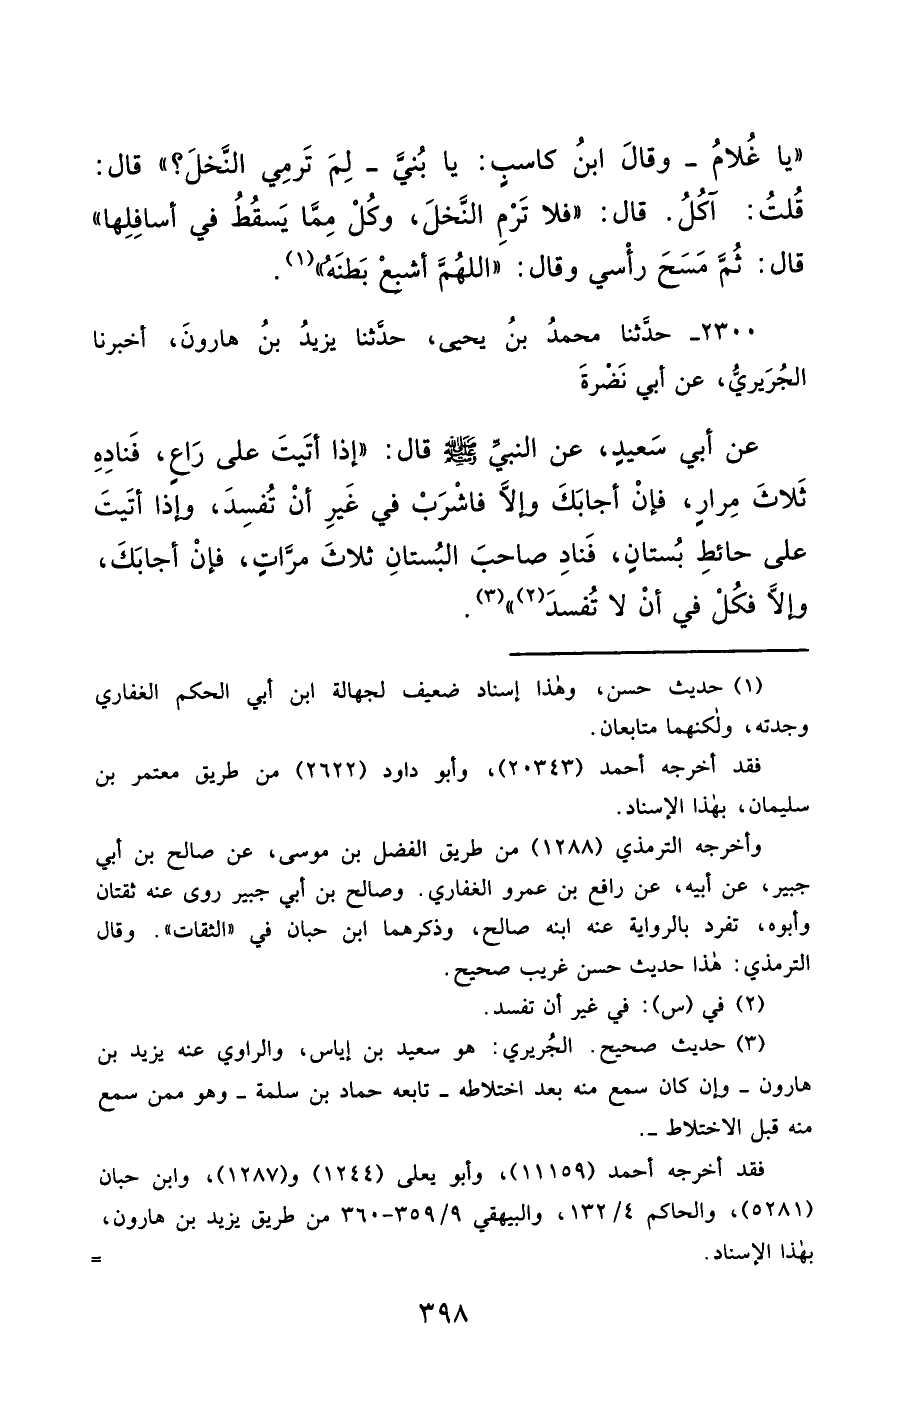 «يا غُلامُ ـ وقالَ ابنُ كاسبٍ: يا بُنيَّ ـ لِمَ تَرمِي النَّخلَ؟» قال:
قُلتُ: آكُلُ. قال: «فلا تَرْمِ النَّخلَ، وكُلْ مِمَّا يَسقُطُ في أسافِلِها»
قال: ثُمَّ مَسَحَ رأْسي وقال: «اللهُمَّ أشبِعْ بَطنَهُ»(١).
٢٣٠٠ـ حدَّثنا محمدُ بنُ يحيى، حدَّثنا يزيدُ بنُ هارونَ، أخبرنا
الجُرَيريُّ، عن أبي نَضْرةَ
عن أبي سَعيدٍ، عن النبيِّ ﷺ قال: «إذا أتَيتَ على رَاعٍ، فَنادِهِ
ثَلاثَ مِرارٍ، فإنْ أجابَكَ وإلاَّ فاشْرَبْ في غَيرِ أنْ تُفسِدَ، وإذا أتَيتَ
على حائطِ بُستانٍ، فَنادِ صاحبَ البُستانِ ثلاثَ مرَّاتٍ، فإنْ أجابَكَ،
وإلاَّ فكُلْ في أنْ لا تُفسدَ(٢)»(٣).
(١) حديث حسن، وهٰذا إسناد ضعيف لجهالة ابن أبي الحكم الغفاري
وجدته، ولٰكنهما متابعان.
فقد أخرجه أحمد (٢٠٣٤٣)، وأبو داود (٢٦٢٢) من طريق معتمر بن
سليمان، بهٰذا الإسناد.
وأخرجه الترمذي (١٢٨٨) من طريق الفضل بن موسى، عن صالح بن أبي
جبير، عن أبيه، عن رافع بن عمرو الغفاري. وصالح بن أبي جبير روى عنه ثقتان
وأبوه، تفرد بالرواية عنه ابنه صالح، وذكرهما ابن حبان في «الثقات». وقال
الترمذي: هٰذا حديث حسن غريب صحيح.
(٢) في (س): في غير أن تفسد.
(٣) حديث صحيح. الجُريري: هو سعيد بن إياس، والراوي عنه يزيد بن
هارون ـ وإن كان سمع منه بعد اختلاطه ـ تابعه حماد بن سلمة ـ وهو ممن سمع
منه قبل الاختلاط ـ.
فقد أخرجه أحمد (١١١٥٩)، وأبو يعلى (١٢٤٤) و(١٢٨٧)، وابن حبان
(٥٢٨١)، والحاكم ١٣٢/٤، والبيهقي ٣٥٩/٩-٣٦٠ من طريق يزيد بن هارون،
بهٰذا الإسناد. =
٣٩٨